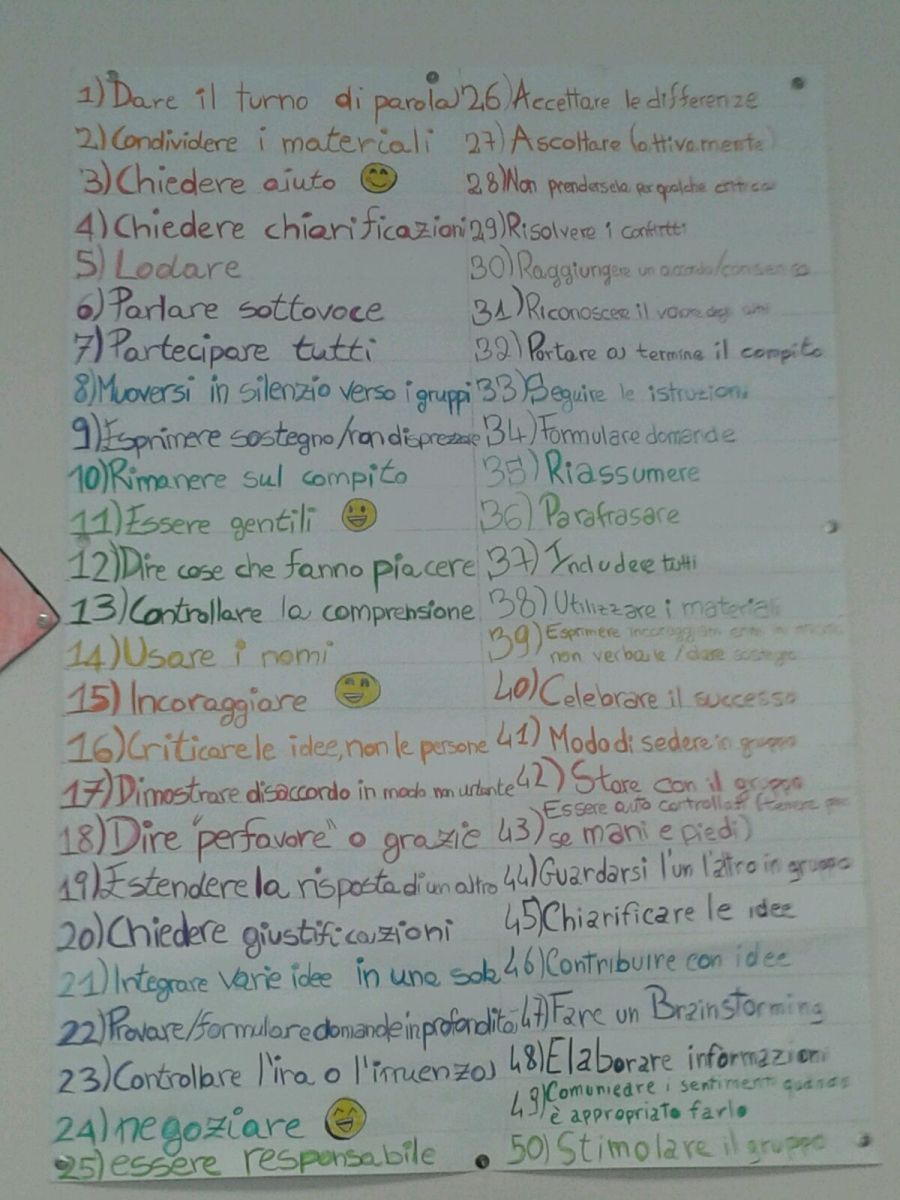 1) Dare il turno di parola
2) Condividere i materiali
3) Chiedere aiuto
4) Chiedere chiarificazioni
5) Lodare
6) Parlare sottovoce
7) Partecipare tutti
8) Muoversi in silenzio verso i gruppi
9) Esprimere sostegno/non disprezzare
10) Rimanere sul compito
11) Essere gentili
12) Dire cose che fanno piacere
13) Controllare la comprensione
14) Usare i nomi
15) Incoraggiare
16) Criticare le idee, non le persone
17) Dimostrare disaccordo in modo non urtante
18) Dire "perfavore" o grazie
19) Estendere la risposta di un altro
20) Chiedere giustificazioni
21) Integrare varie idee in una sola
22) Provare/formulare domande in profondità
23) Controllare l'ira o l'irruenza
24) negoziare
25) essere responsabile
26) Accettare le differenze
27) Ascoltare (attivamente)
28) Non prendersela per qualche critica
29) Risolvere i
30) Raggiungere un accordo/consenso
31) Riconoscere il
32) Portare a termine il compito
33) Seguire le istruzioni
34) Formulare domande
35) Riassumere
36) Parafrasare
37) Includere tutti
38) Utilizzare i materiali
39) Esprimere
non verbale/dare sostegno
40) Celebrare il successo
41) Modo di sedere in gruppo
42) Stare con il gruppo
43) Essere auto controllati (tenere per
se mani e piedi)
44) Guardarsi l'un l'altro in gruppo
45) Chiarificare le idee
46) Contribuire con idee
47) Fare un Brainstorming
48) Elaborare informazioni
49) Comunicare i sentimenti quando
è appropriato farlo
50) Stimolare il gruppo